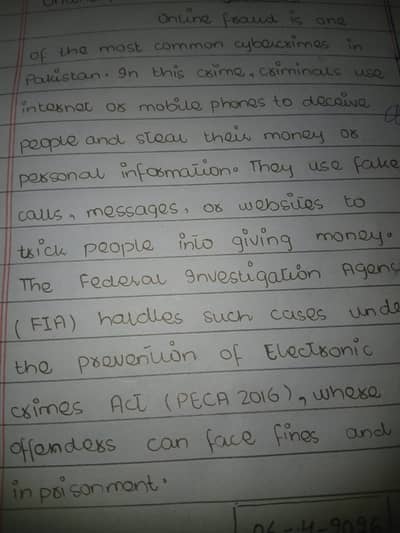 Online fraud is one
of the most common cybercrimes in
Pakistan. In this crime, criminals use
internet or mobile phones to deceive
people and steal their money or
personal information. They use fake
calls, messages, or websites to
trick people into giving money.
The Federal Investigation Agenc
(FIA) haldles such cases unde
the prevention of Electronic
crimes Act (PECA 2016), where
offenders can face fines and
inprisonment.